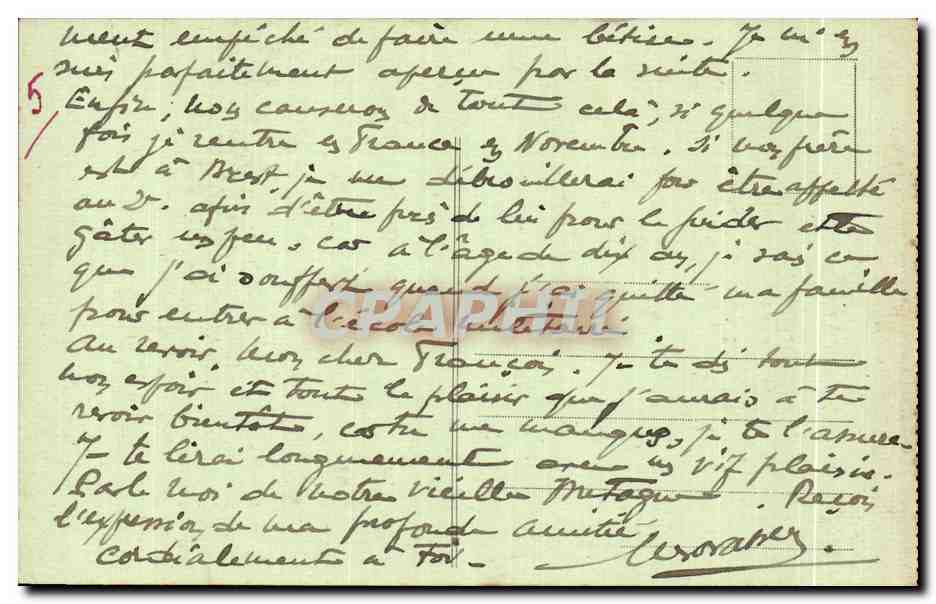 ment empêché de faire une bêtise. Je m'en
suis parfaitement aperçu par la suite.
5
Enfin, nous causerons de tout cela, si quelque
fois je rentre en France en Novembre. Si mon frère
est à Brest, je me débrouillerai pour être affecté
au 2e. afin d'être près de lui pour le guider et le
gâter un peu, car à l'âge de dix ans, je sais ce
que j'ai souffert quand j'ai quitté ma famille
pour entrer à l'école militaire.
CPAPHIL
Au revoir, mon cher François. Je te dis tout
mon espoir et toute le plaisir que j'aurais à te
revoir bientôt, car tu me manques, je te l'assure.
Je te lirai longuement avec un vif plaisir.
Parle moi de notre vieille Bretagne. Reçois
l'expression de ma profonde amitié
cordialement à Toi.